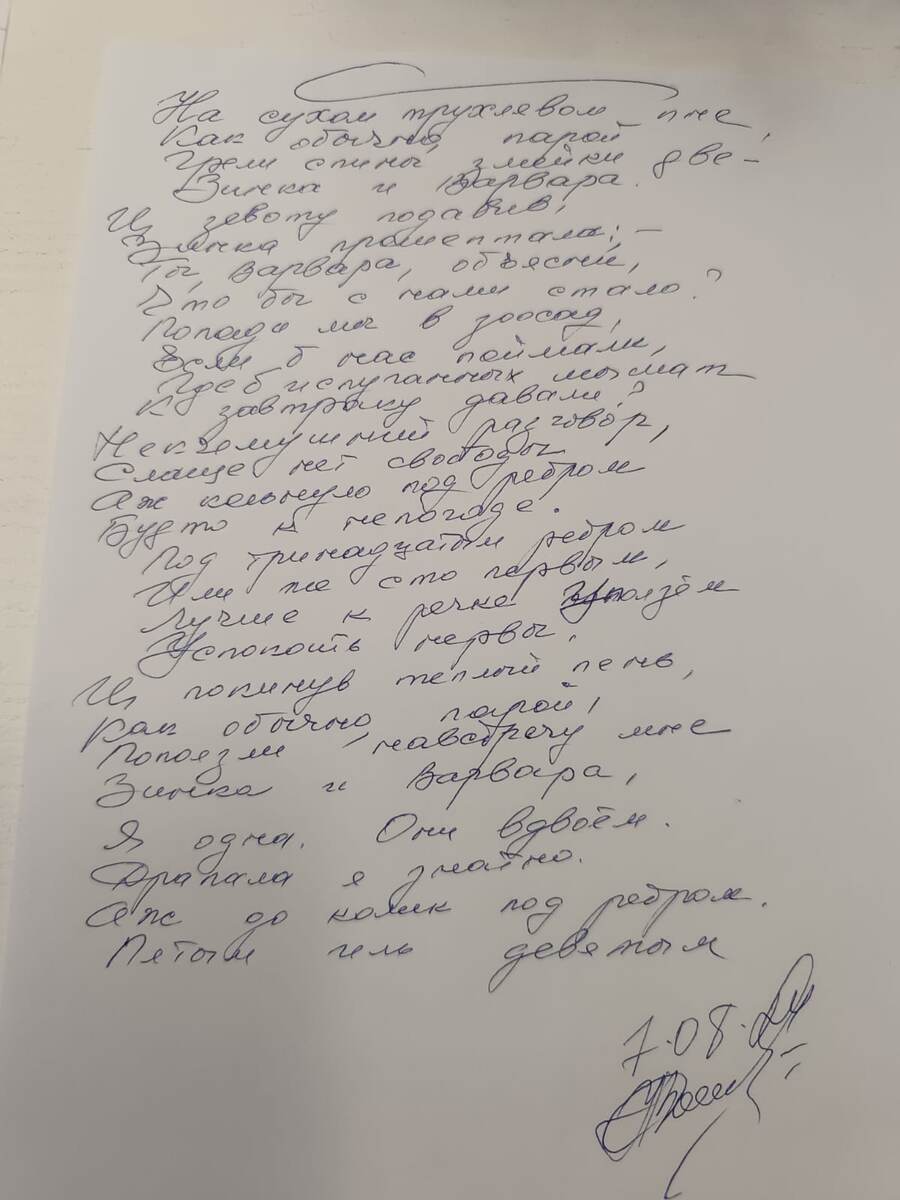 На сухом трухлявом пне,
Как обычно, парой
Грели спины змейки две –
Зинка и Варвара.
И, зевоту подавив,
Зинка прошептала: –
Ты, Варвара, объясни,
Что бы с нами стало?
Попади мы в зоосад,
Если б нас поймали,
Где б испуганных мышат
К завтраку давали?
Никчемушний разговор,
Слаще нет свободы
Аж кольнуло под ребром
Будто к непогоде.
Под тринадцатым ребром
Или же сто первым,
Лучше к речке уползём
Успокоить нервы.
И, покинув теплый пень,
Как обычно, парой,
Поползли навстречу мне
Зинка и Варвара,
Я одна. Они вдвоём.
Драпала я знатно.
Аж до колик под ребром.
Пятым иль девятым
7.08.24